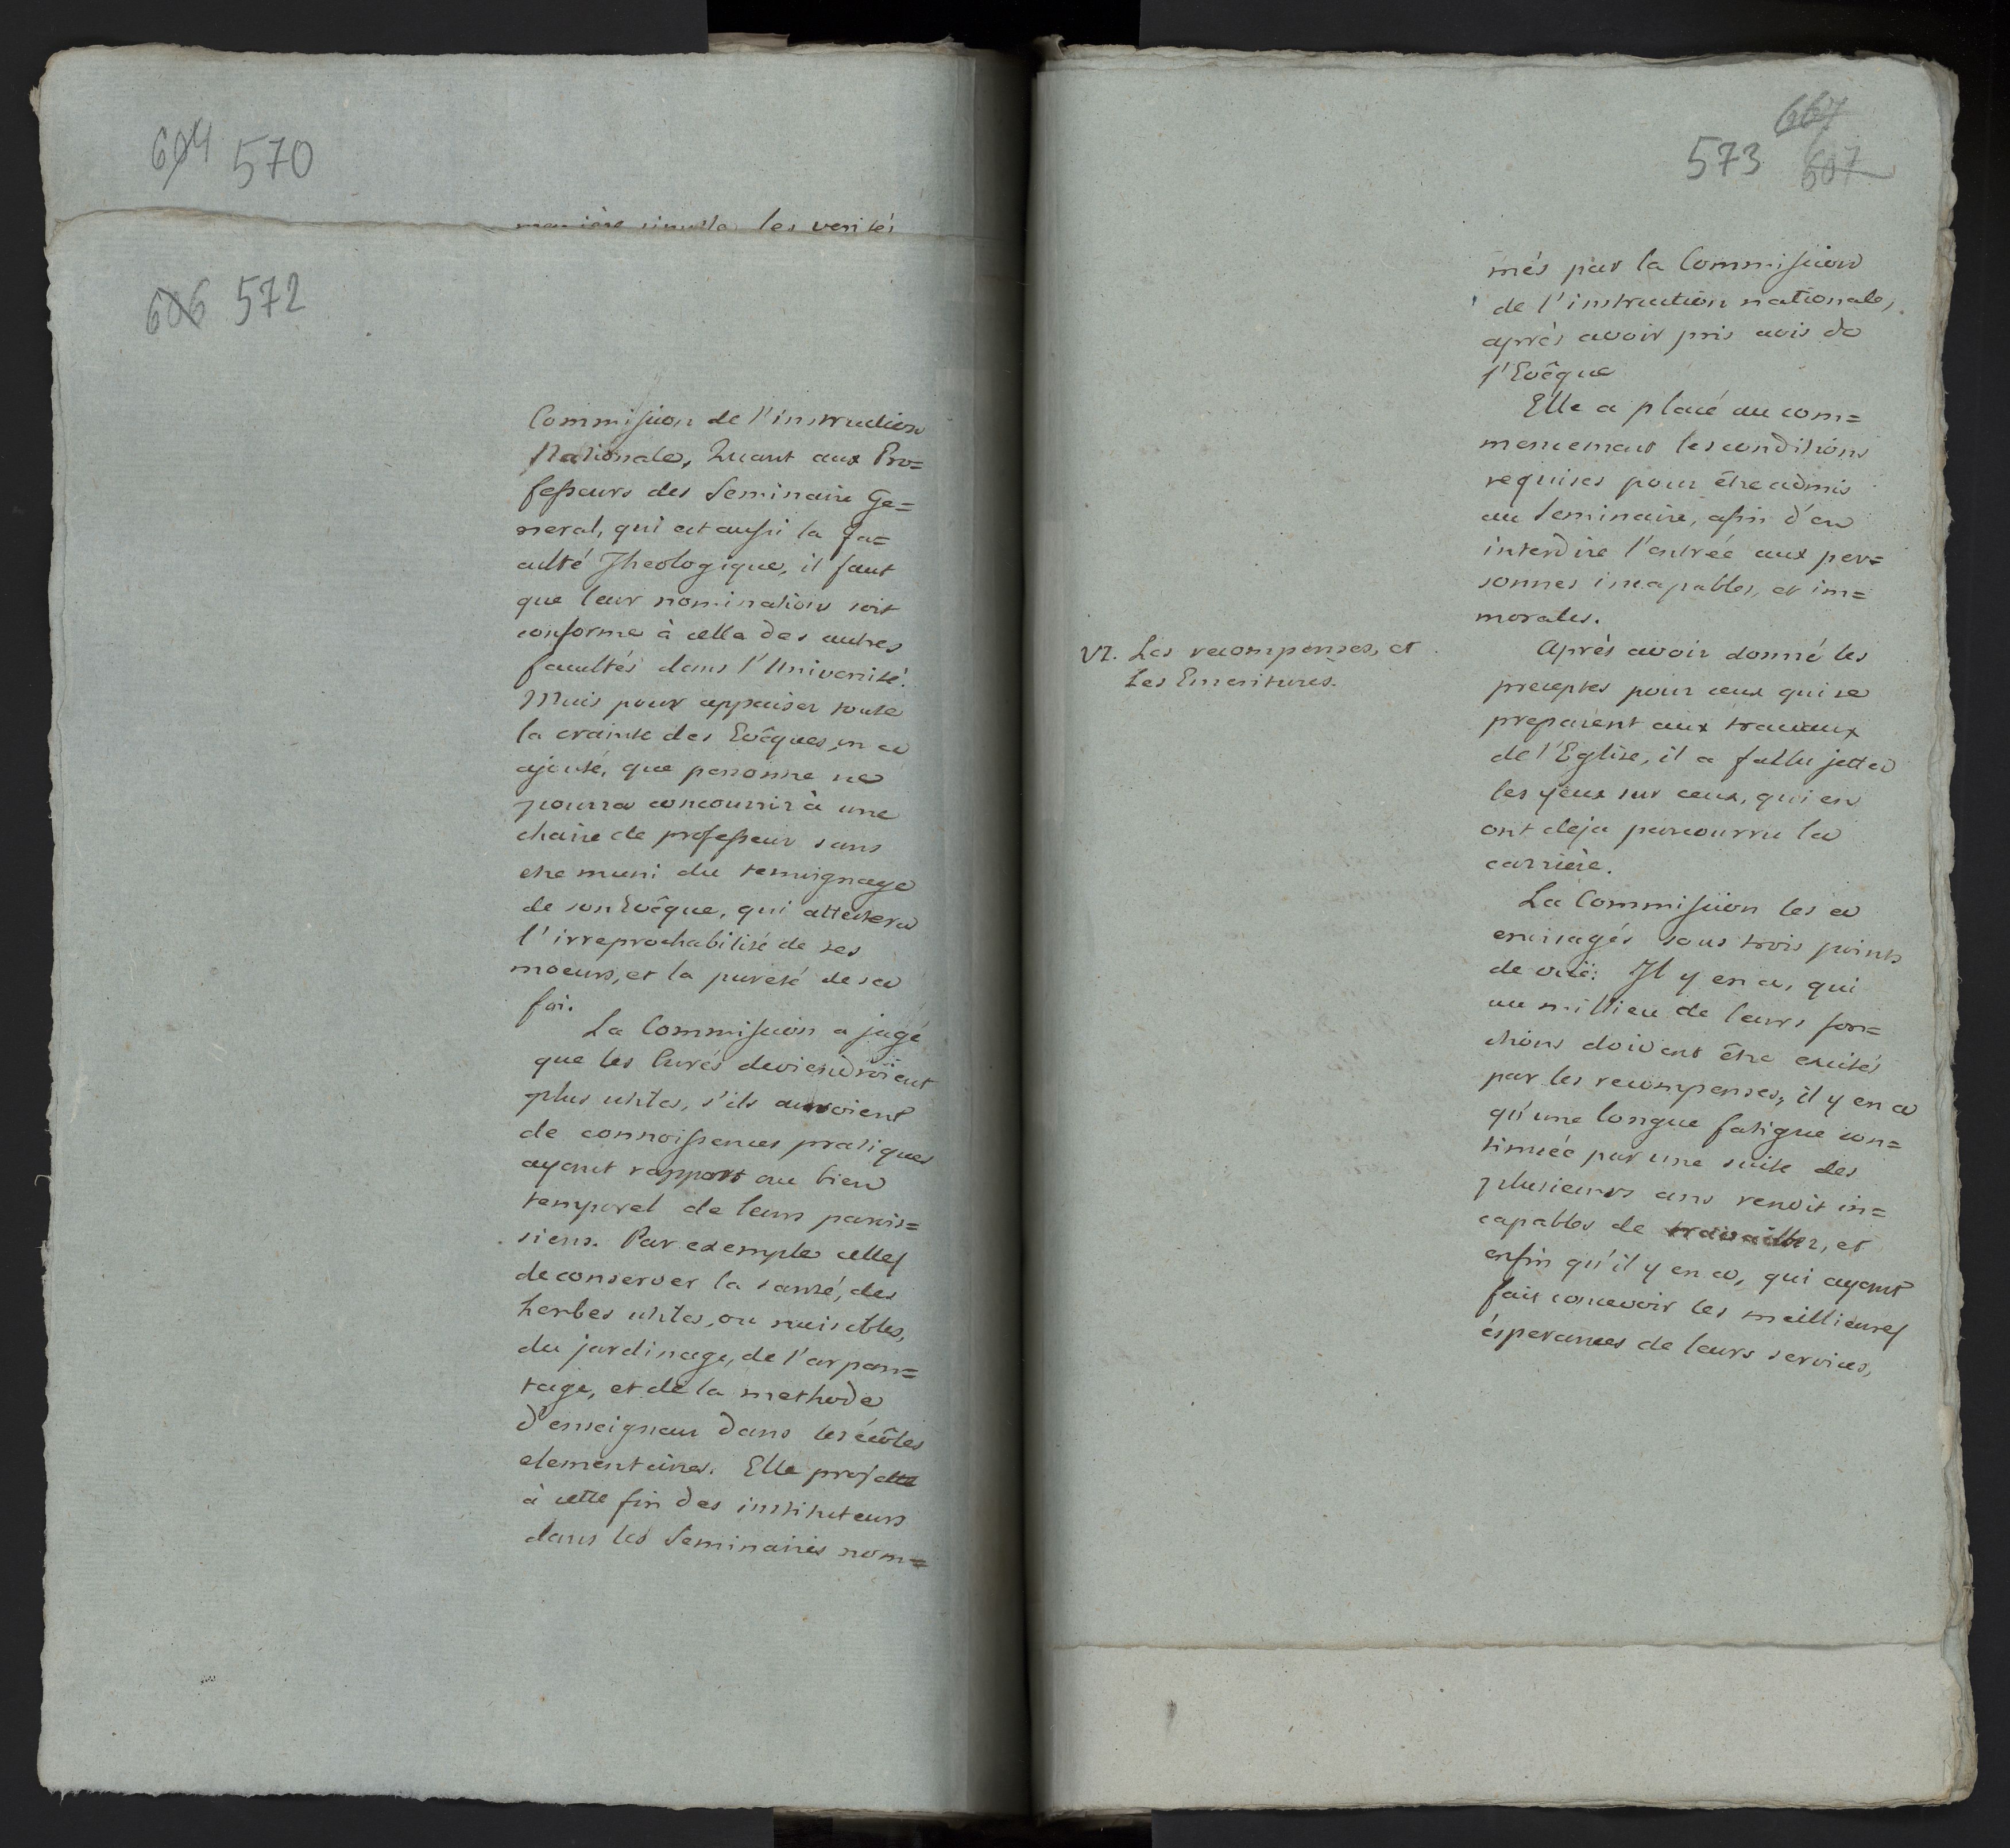 604 570
manière simple les verités
606 572
Commission de l'instruction
Nationale, Quant aux Pro=
fesseurs des Seminaire Ge=
neral, qui est aussi la Fa=
culté Theologique, il faut
que leur nomination soit
conforme à celle des autres
facultés dans l'Université.
Mais pour appaiser toute
la crainte des Evêques, on a
ajouté, que personne ne
pourra concourrir à une
chaire de professeur sans
etre muni du temoignage
de son Evêque, qui attestera
l'irreprochabilité de ses
moeurs, et la pureté de sa
foi.
La Commission a jugé
que les Curés deviendroient
plus utiles, s'ils auroient
de connoissances pratiques
ayant rapport au bien
temporel de leurs parois=
siens. Par exemple celles
de conserver la santé, des
herbes utiles, ou nuisibles,
du jardinage, de l'arpan=
tage, et de la methode
d'enseigneur dans les écôles
elementaires. Elle projette
à cette fin des instituteurs
dans les Seminaires nom=
667
573 607
més par la Commission
de l'instruction nationale,
après avoir pris avis de
l'Evêque
Elle a placé au com=
mencement les conditions
requises pour être admis
au Seminaire, afin d'en
interdire l'entrée aux per=
sonnes incapables, et im=
morales.
VI. Les recompenses, et
Les Emeritures.
Après avoir donné les
preceptes pour ceux qui se
preparent aux travaux
de l'Eglise, il a fallu jetter
les yeux sur ceux, qui en
ont deja parcourru la
carrière.
La Commission les a
envisagés sous trois points
de vuë: Il y en a, qui
au millieu de leurs fon=
ctions doivent être excités
par les recompenses, il y en a
qu'une longue fatigue con=
tinuée par une suite des
plusieurs ans rendit in=
capables de travailler, et
enfin qu'il y en a, qui ayant
fait concevoir les meillieures
ésperances de leurs services,